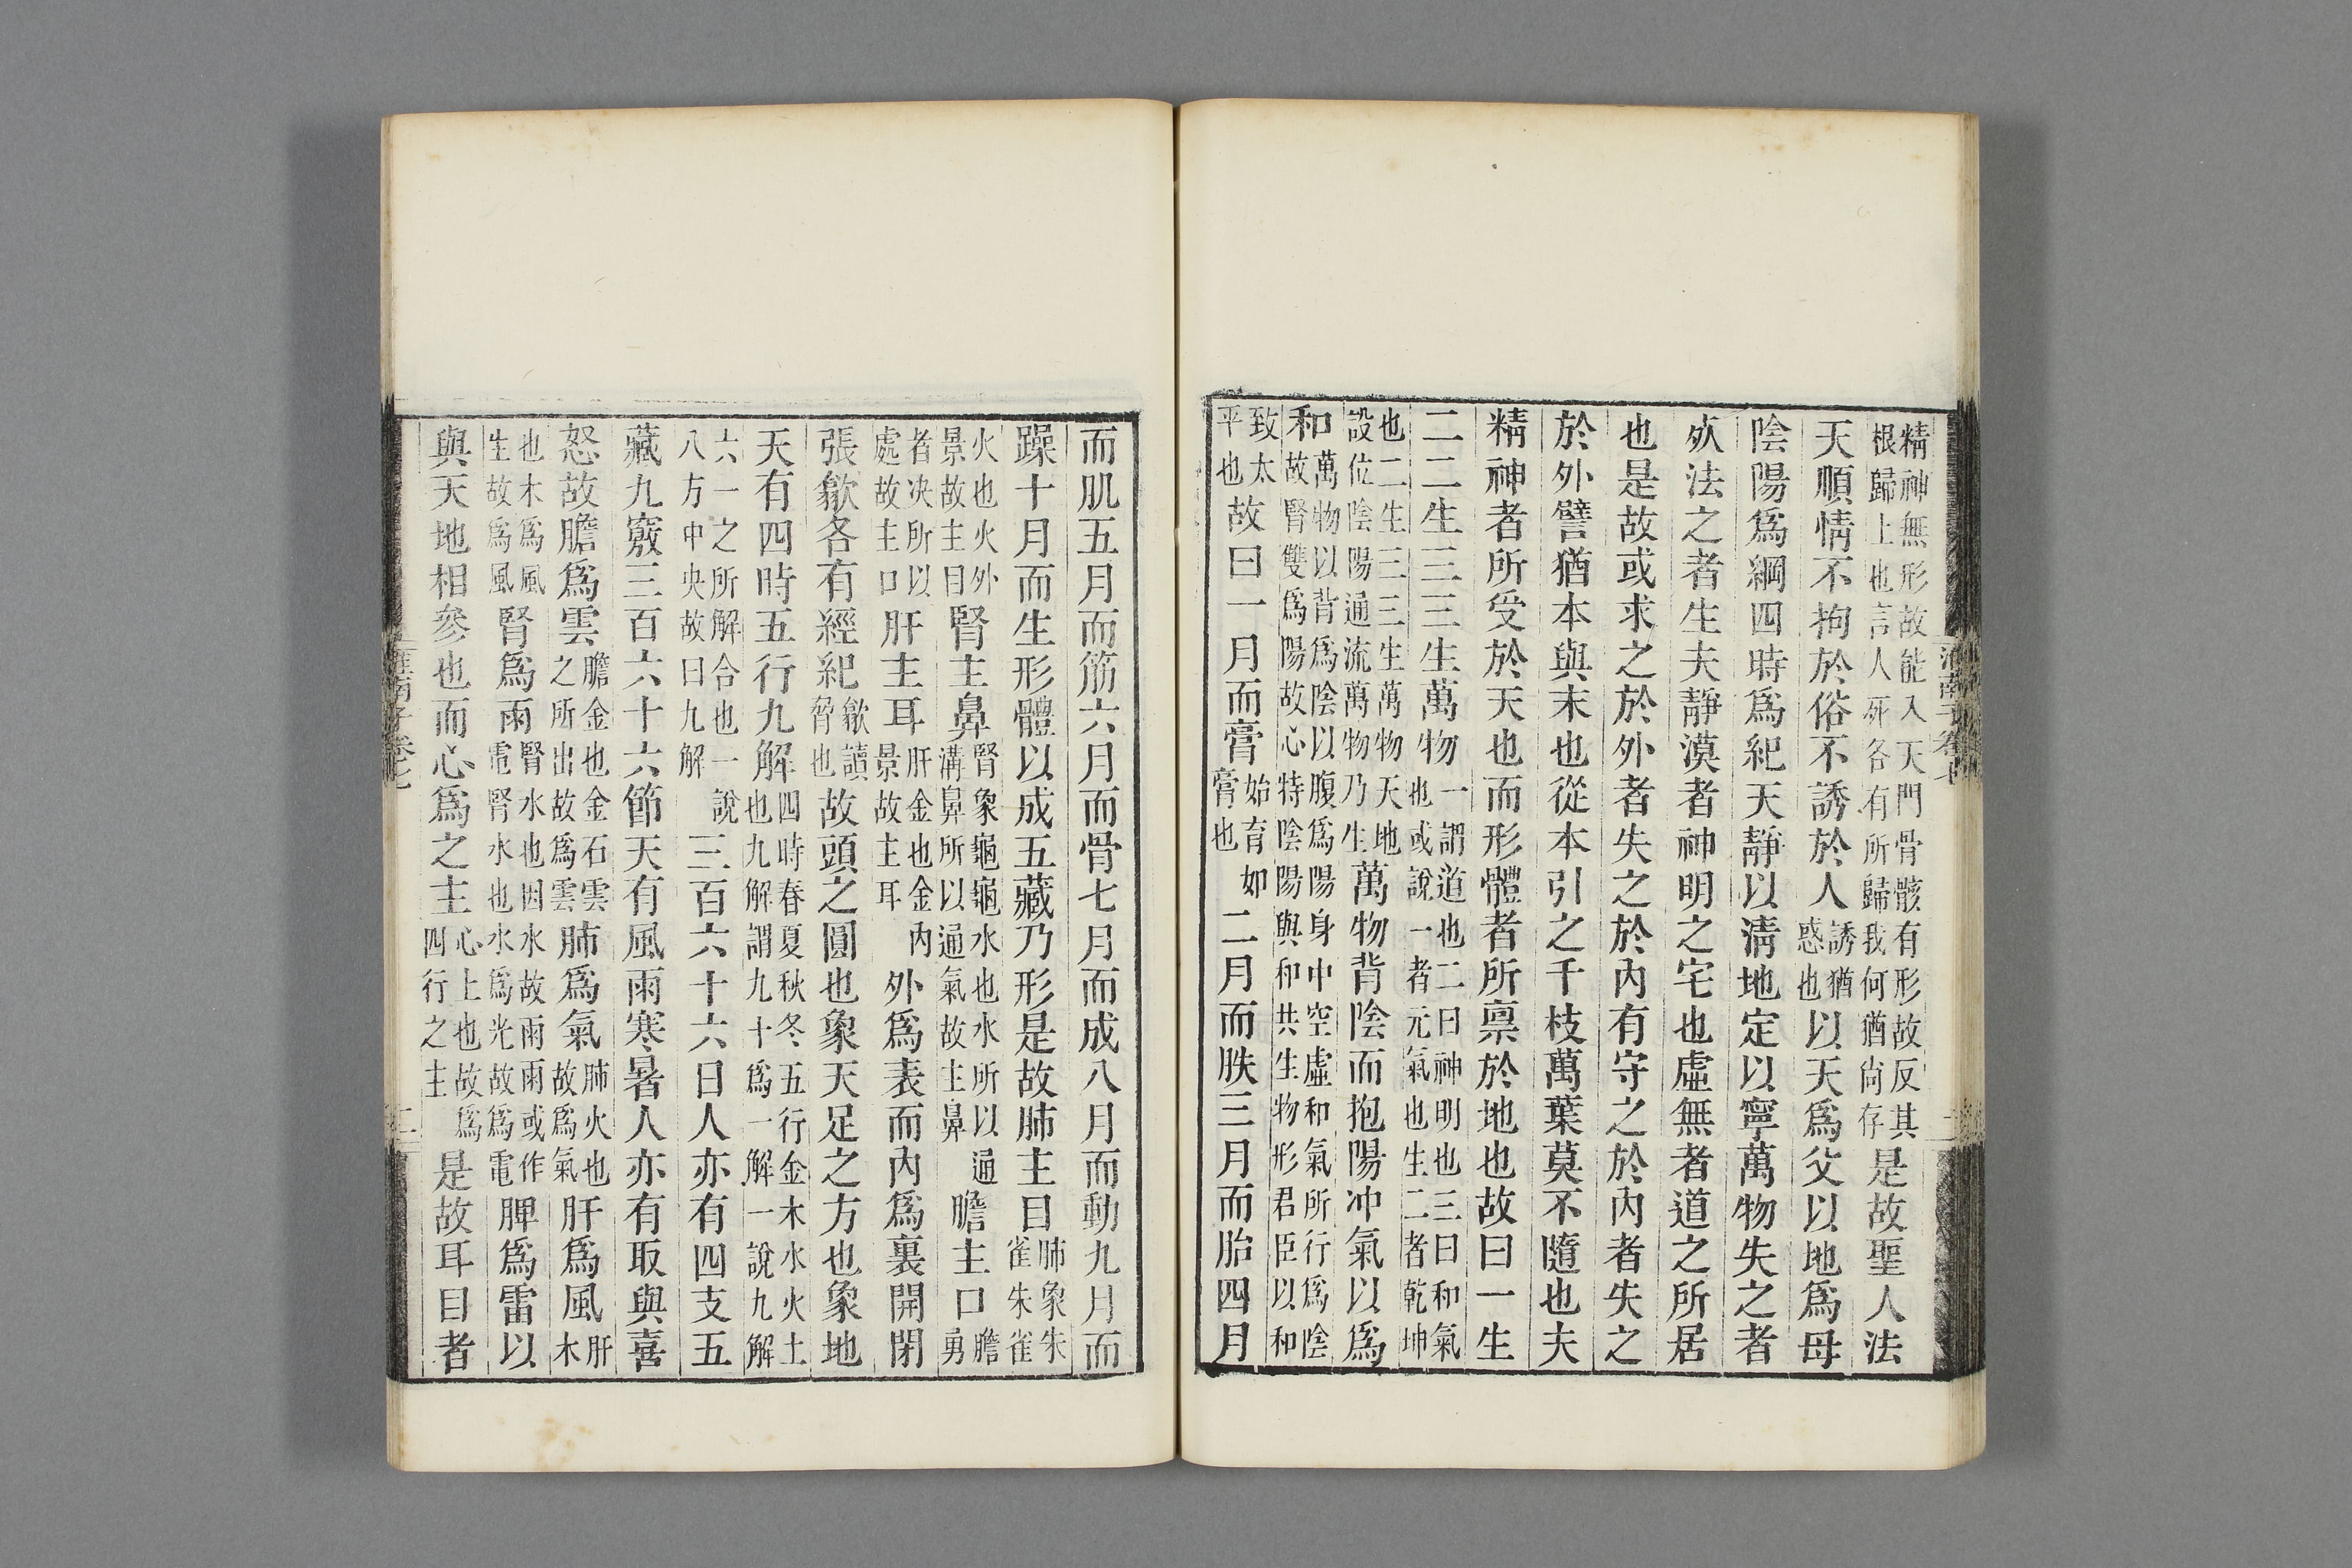 精神無形故能入天門骨骸有形故反其根歸土也言人死各有所歸我何猶尚存是故聖人法
天順情不拘於俗不誘於人誘猶惑也以天爲父以地爲母
陰陽爲綱四時爲紀天靜以淸地定以寧萬物失之者
㱙法之者生夫靜漠者神明之宅也虛無者道之所居
也是故或求之於外者失之於內有守之於內者失之
於外譬猶本與末也從本引之千枝萬葉莫不隨也夫
精神者所受於天也而形體者所禀於地也故曰一生
二二生三三生萬物一謂道也二曰神明也三曰和氣也或說一者元氣也生二者乾坤
也二生三三生萬物天地設位陰陽通流萬物乃生萬物背陰而抱陽沖氣以爲
和萬物以背爲陰以腹爲陽身中空虛和氣所行爲陰故腎雙爲陽故心特陰陽與和共生物形君臣以和
致太平也故曰一月而膏始育如膏也二月而胅三月而胎四月
而肌五月而筋六月而骨七月而成八月而動九月而
躁十月而生形體以成五藏乃形是故肺主目肺象朱雀朱雀
火也火外景故主目腎主鼻腎象龜龜水也水所以通溝鼻所以通氣故主鼻膽主口膽勇
者決所以處故主口肝主耳肝金也金內景故主耳外爲表而內爲裏開閉
張歙各有經紀歙讀脅也故頭之圓也象天足之方也象地
天有四時五行九解四時春夏秋冬五行金木水火土也九解謂九十爲一解一說九解
六一之所解合也一說八方中央故曰九解三百六十六日人亦有四支五
藏九竅三百六十六節天有風雨寒暑人亦有取與喜
怒故膽爲雲膽金也金石雲之所出故爲雲肺爲氣肺火也故爲氣肝爲風肝木
也木爲風生故爲風腎爲雨腎水也因水故雨雨或作電腎水也水爲光故爲電脾爲雷以
與天地相參也而心爲之主心上也故爲四行之主是故耳目者
淮南子卷七
二